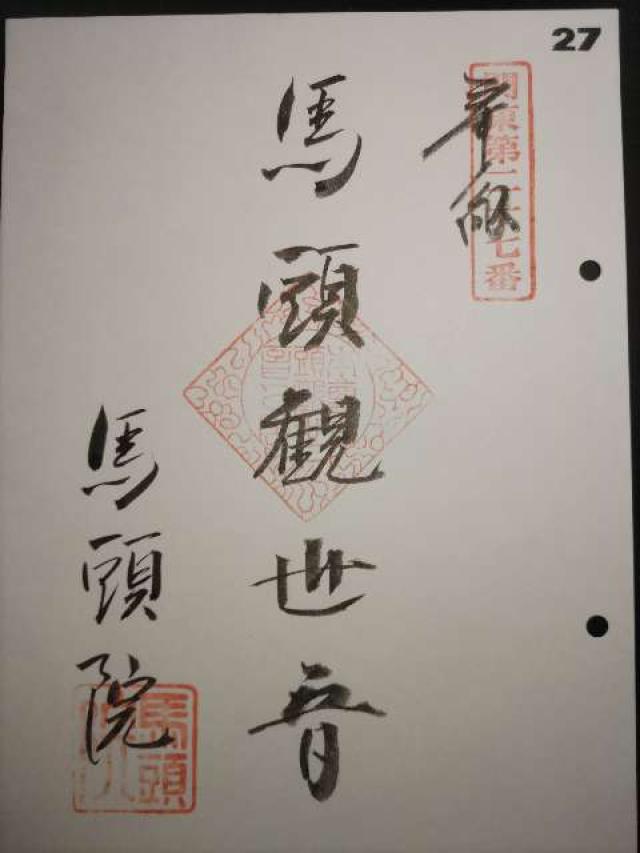 27
関東第二十七番
馬頭観世音
馬頭院
馬頭